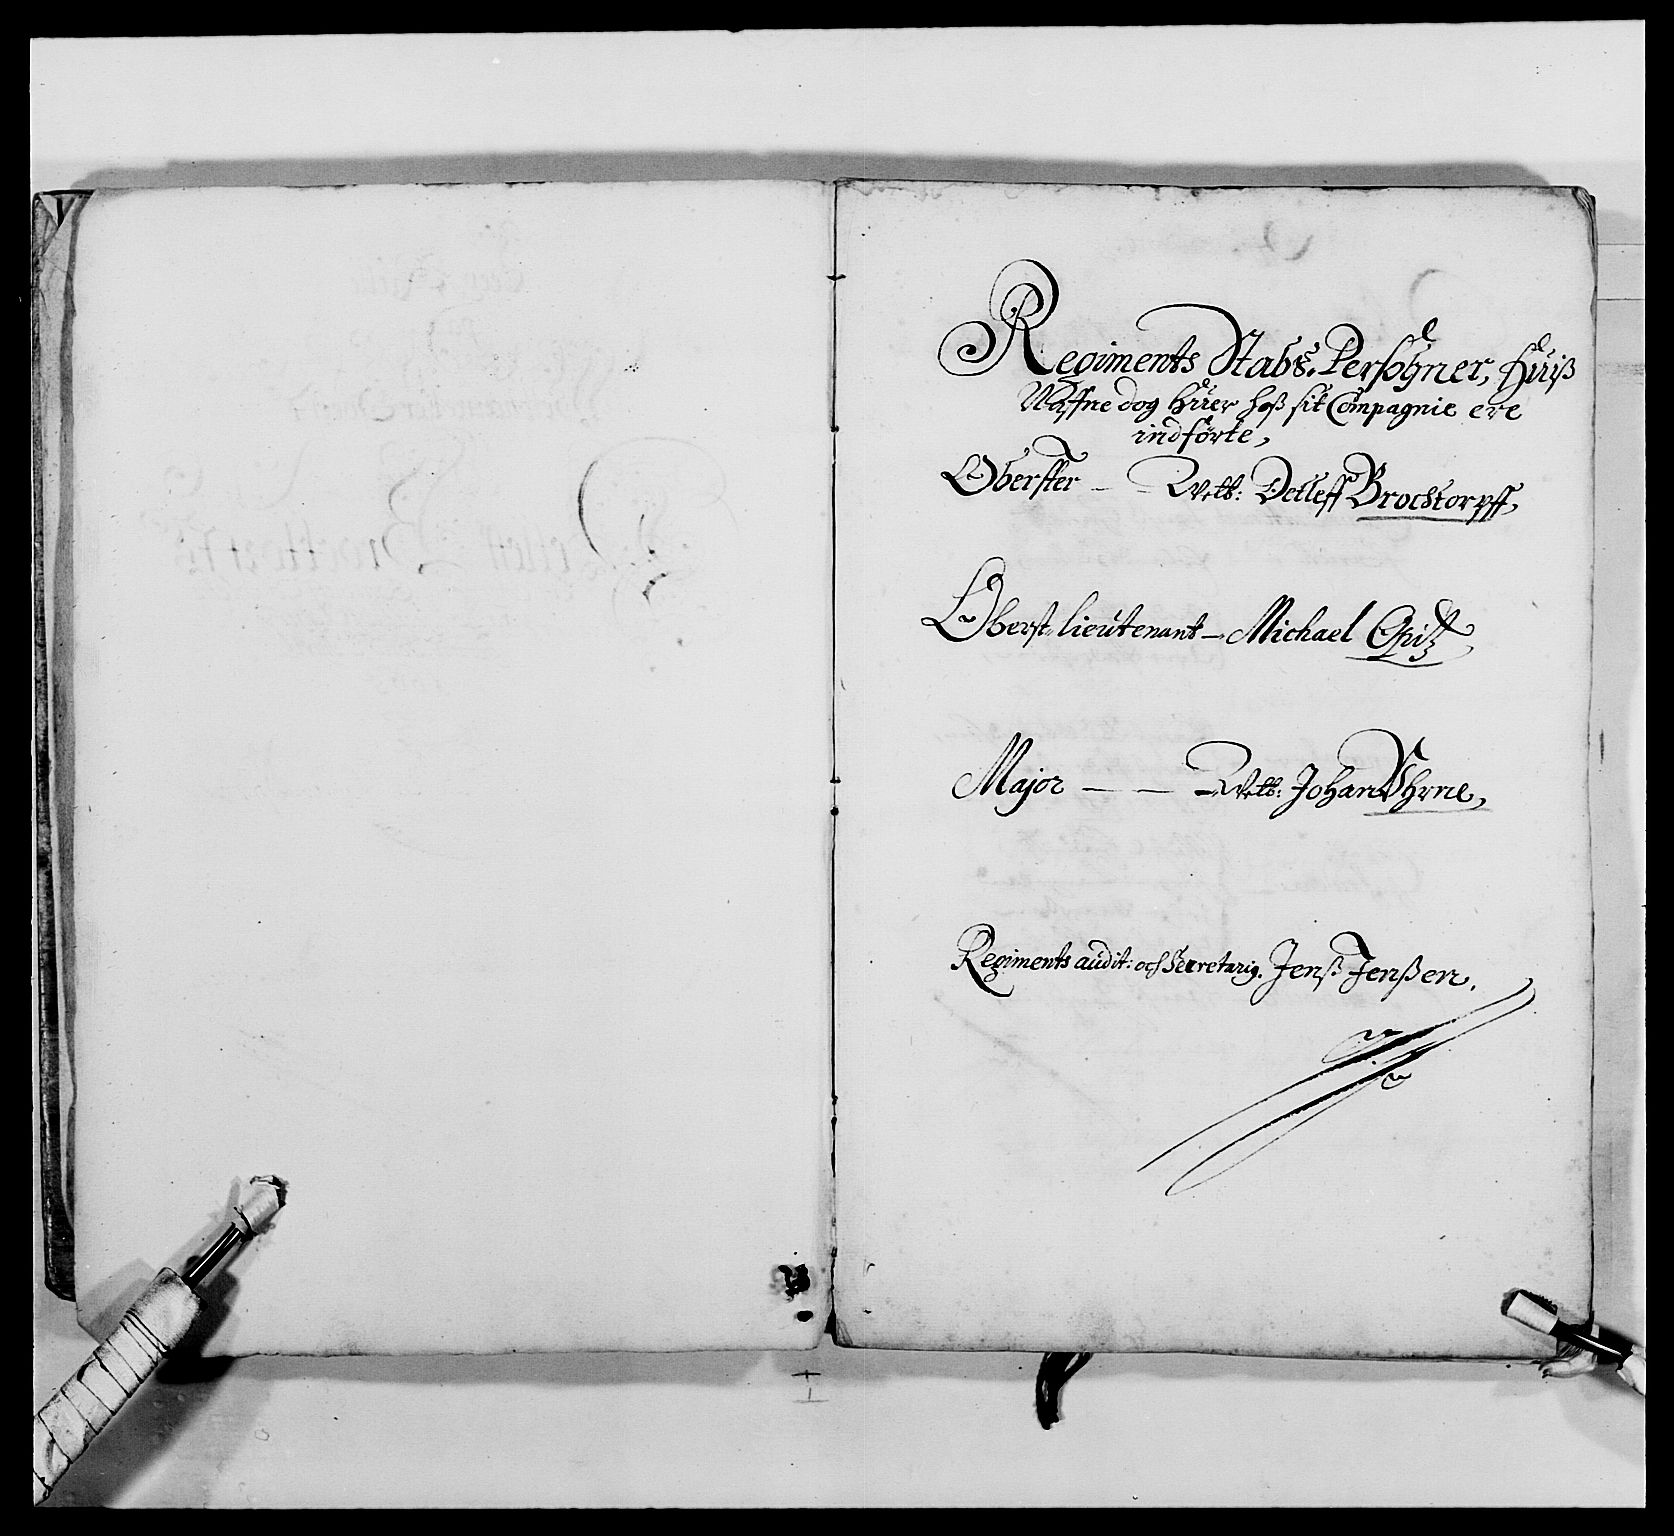 Regiments Stabs Persohner, Huiß
Naffne dog huer hoß sit Compagnie ere
indförte,
Oberster — Velb: Detleff Brochtorpff,
Oberst lieutenant — Michael Opitz,
Major — — Velb: Johan Vhrne,
Regiments audit: och Secretarig. Jenß Jenßen.